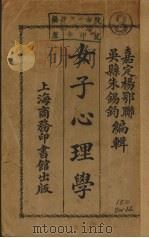 嘉定楊鄂聯
吳縣朱錫鈞 編輯
女子心理學
上海商務印書館出版